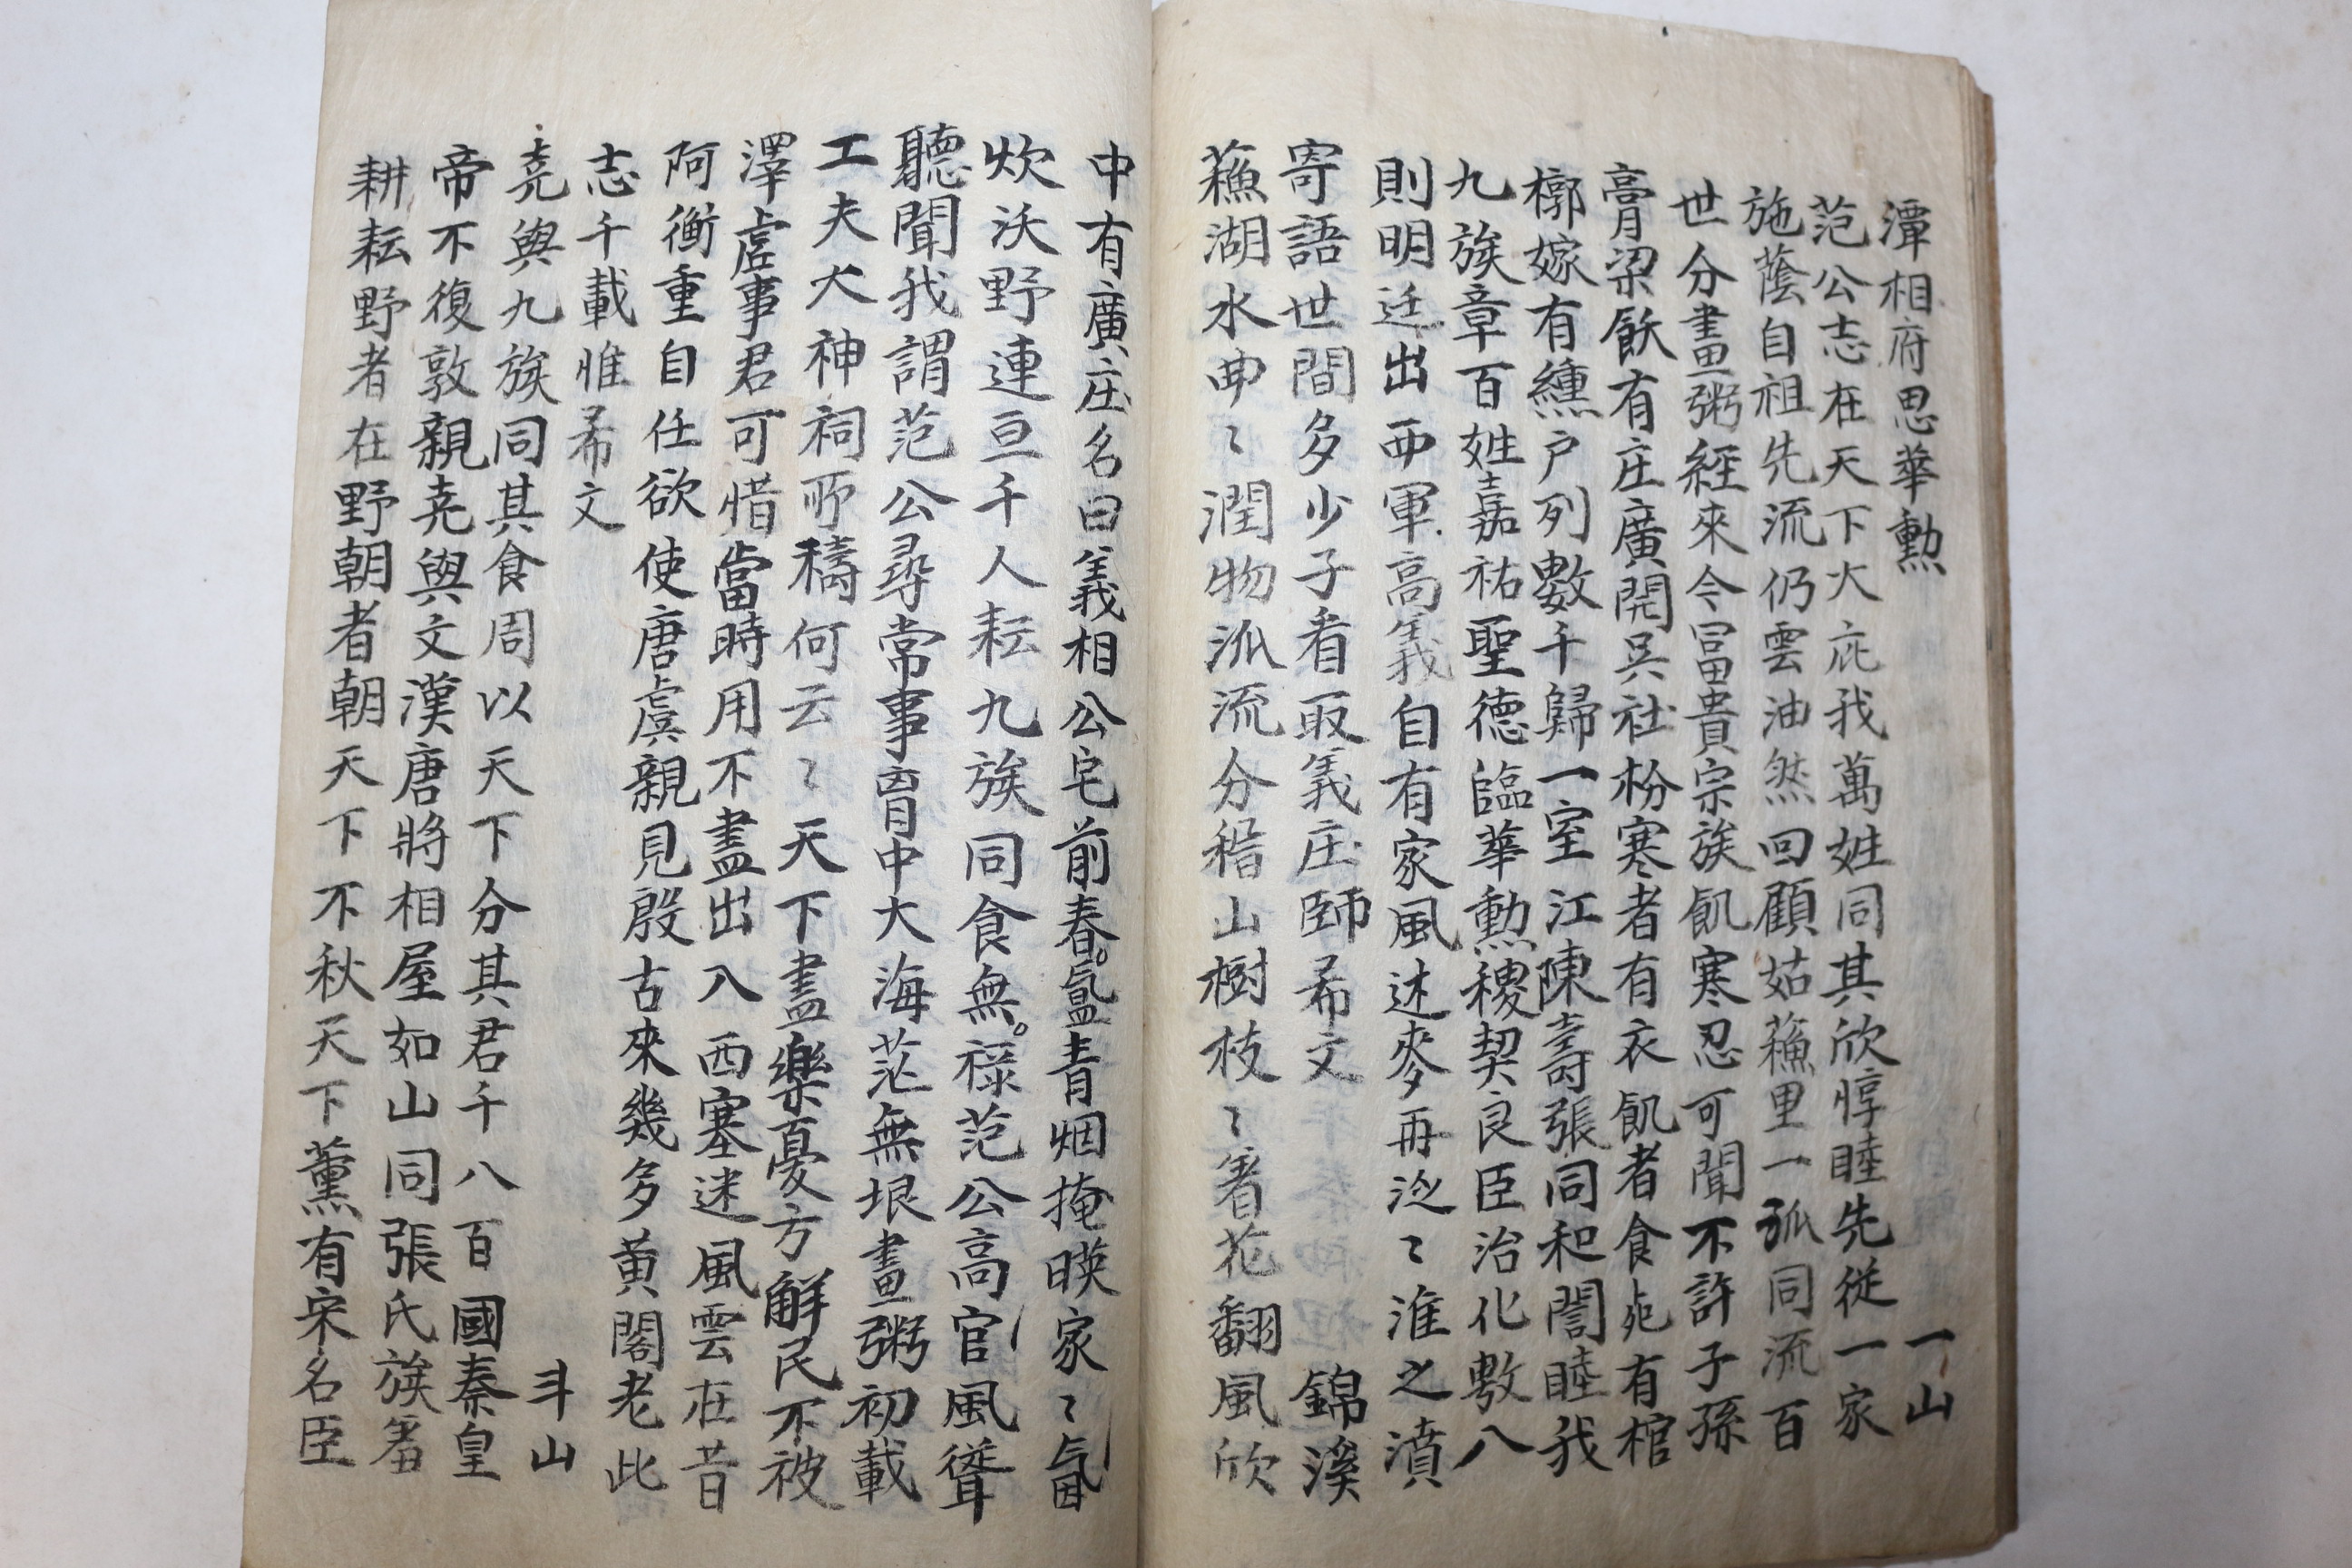 潭相府思華勲 一山
范公志在天下大庇我萬姓同其欣惇睦先從一家
施蔭自祖先流仍雲油然回顧姑蘓里一派同流百
世分畫粥經來今冨貴宗族飢寒忍可聞不許子孫
膏梁飫有庄廣開吳社枌寒者有衣飢者食死有棺
槨嫁有纁户列數千歸一室江陳壽張同和誾睦我
九族章百姓嘉祐聖德臨華勲稷契良臣治化敷八
則明廷出西軍高義自有家風述麥再泛〻淮之濆
寄語世間多少子看取義庄師希文 錦溪
蘓湖水曲〻潤物派流分稽山樹枝〻着花翻風欣
中有廣庄名曰義相公宅前春氳青烟掩暎家〻氤
炊沃野連亘千人耘九族同食無祿范公高官風聳
聽聞我謂范公尋常事胷中大海茫無垠畫粥初載
工夫大神祠所禱何云〻天下盡樂憂方解民不被
澤虛事君可惜當時用不盡出入西塞迷風雲在昔
阿衡重自任欲使唐虞親見殷古來幾多黄閣老此
志千載惟希文
斗山
堯與九族同其食周以天下分其君千八百國秦皇
帝不復敦親堯與文漢唐將相屋如山同張氏族羣
耕耘野者在野朝者朝天下不秋天下薰有宋名臣